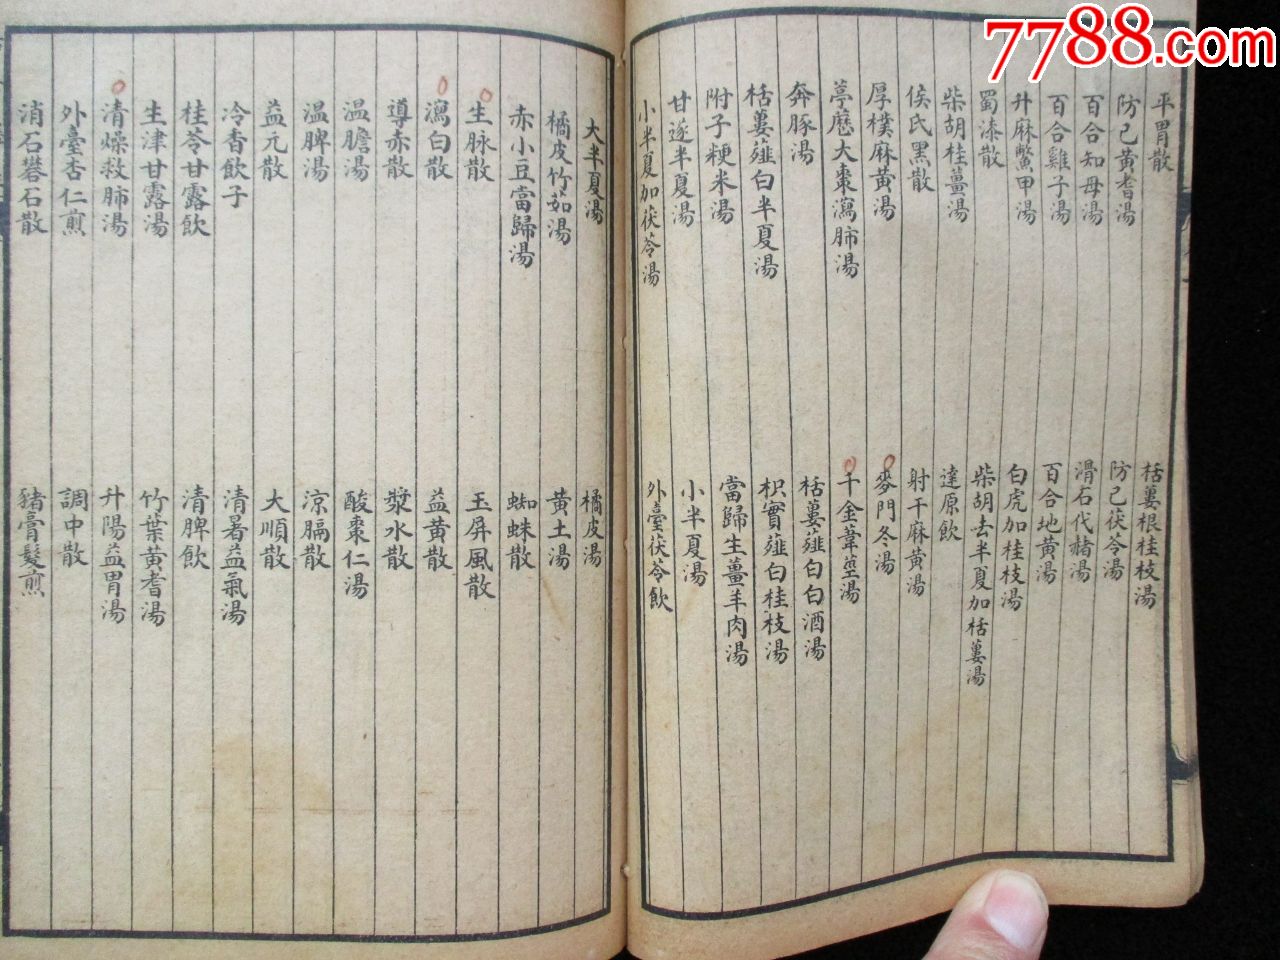 7788.com
平胃散
栝蔞根桂枝湯
防己黃耆湯
防己茯苓湯
百合知母湯
滑石代赭湯
百合雞子湯
百合地黃湯
升麻鱉甲湯
白虎加桂枝湯
蜀漆散
柴胡去半夏加栝蔞湯
柴胡桂薑湯
達原飲
侯氏黑散
射干麻黃湯
厚樸麻黃湯
麥門冬湯
葶歷大棗瀉肺湯
千金葦莖湯
奔豚湯
栝蔞薤白白酒湯
栝蔞薤白半夏湯
枳實薤白桂枝湯
附子粳米湯
當歸生薑羊肉湯
甘遂半夏湯
小半夏湯
小半夏加茯苓湯
外臺茯苓飲
大半夏湯
橘皮湯
橘皮竹茹湯
黃土湯
赤小豆當歸湯
蜘蛛散
生脉散
玉屏風散
瀉白散
益黃散
導赤散
漿水散
溫膽湯
酸棗仁湯
溫脾湯
涼膈散
益元散
大順散
冷香飲子
清暑益氣湯
桂苓甘露飲
清脾飲
生津甘露湯
竹葉黃耆湯
清燥救肺湯
升陽益胃湯
外臺杏仁煎
調中散
消石礬石散
豬膏髮煎